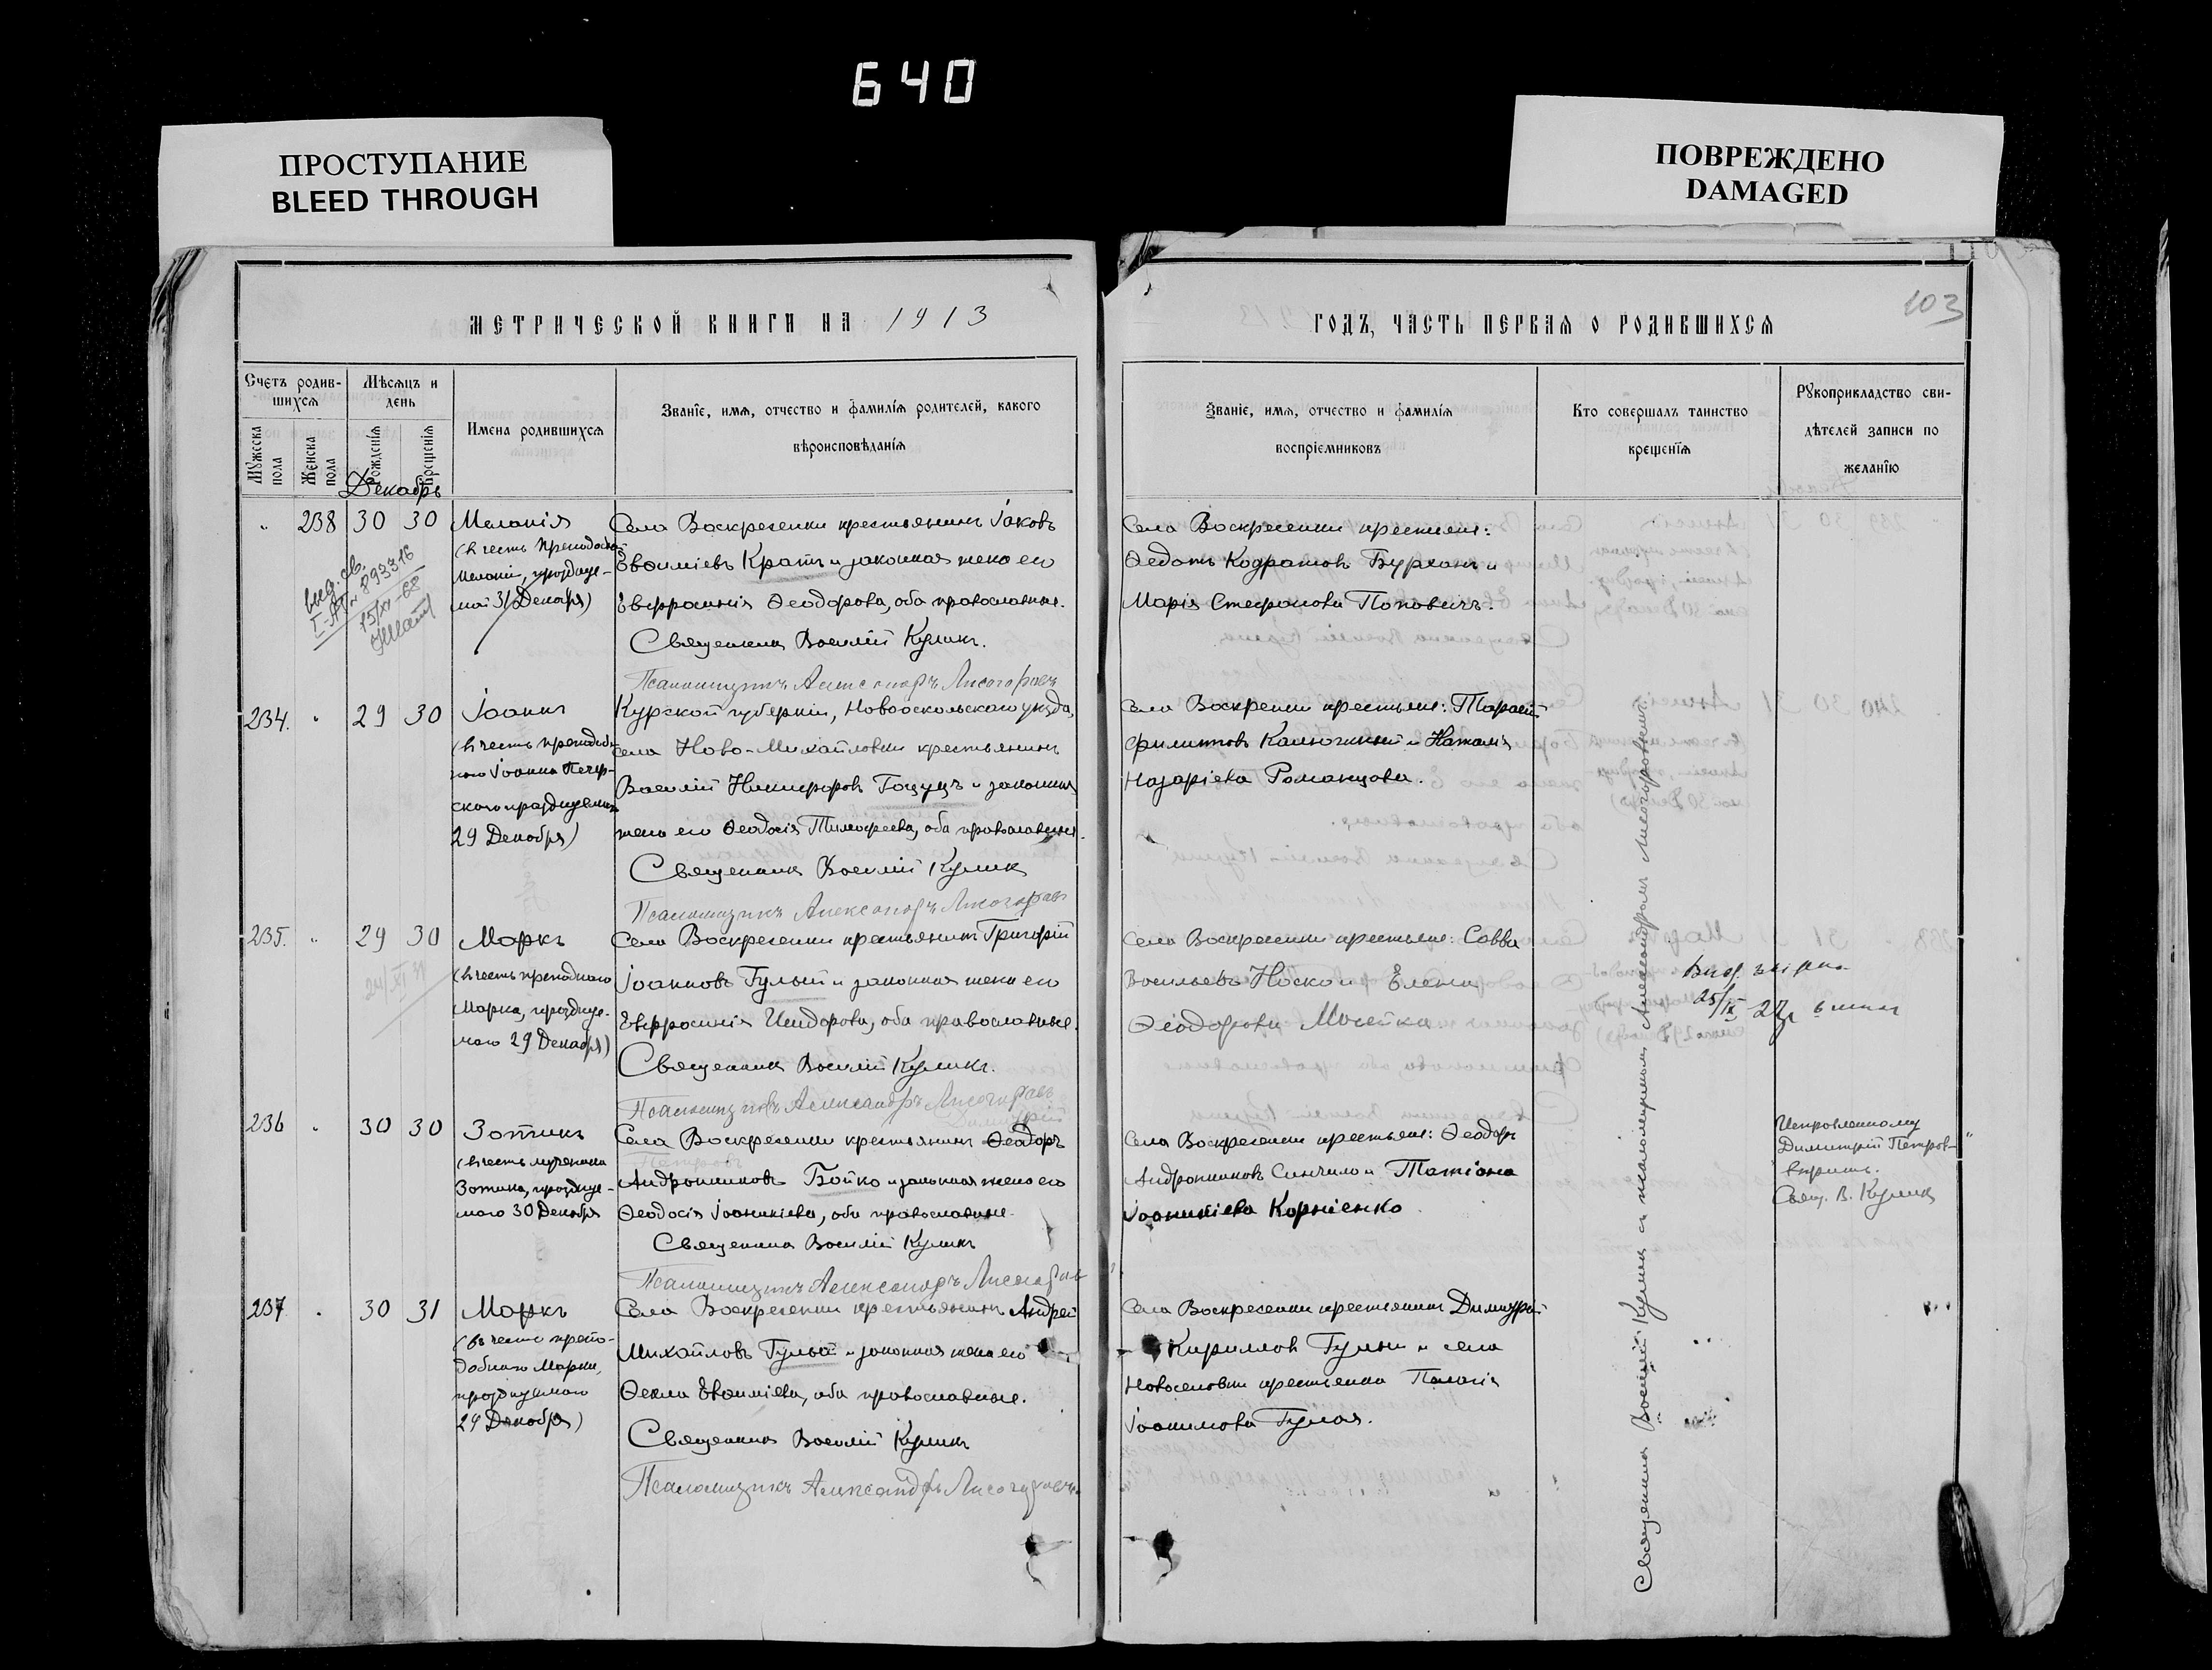 640
ПРОСТУПАНИЕ
BLEED THROUGH
ПОВРЕЖДЕНО
DAMAGED
МЕТРИЧЕСКОЙ КНИГИ НА 1913
Счетъ родив-
шихся
Мѣсяцъ и
день
Мужеска
пола
Женска
пола
Рожденія
Крещенія
Имена родившихся
Званіе, имя, отчество и фамилія родителей, какого
вѣроисповѣданія
Декабрь
" 238 30 30 Меланія
(въ честь Преподоб.
Меланіи, праздуе-
мой 31 Декабря)
выд. св.
I-АП № 893316
15/XI-68
Села Воскресенки крестьянинъ Іаковъ
Евѳиміевъ Кратъ и законная жена его
Евфросинія Ѳеодорова, оба православные.
Священникъ Василій Куликъ.
Псаломщикъ Александръ Лисогоровъ
234. " 29 30 Іоаннъ
(въ честь преподоб-
наго Іоанна Печер-
скаго празднуемаго
29 Декабря)
Курской губерніи, Новооскольскаго уѣзда,
села Ново-Михайловки крестьянинъ
Василій Никифоровъ Гоцуцъ и законная
жена его Ѳеодосія Тимофеева, оба православные.
Священникъ Василій Куликъ
Псаломщикъ Александръ Лисогоровъ
235. " 29 30 Маркъ
(въ честь преподнаго
Марка, праздуе-
маго 29 Декабря)
24/XI 31
Села Воскресенки крестьянинъ Григорій
Іоанновъ Гулый и законная жена его
Евфросинія Исидорова, оба православные.
Священникъ Василій Куликъ.
Псаломщикъ Александръ Лисогоровъ
236 " 30 30 Зотикъ
(въ честь мученика
Зотика, праздуе-
маго 30 Декабря
Димитрій
Села Воскресенки крестьянинъ Ѳеодоръ
Петровъ
Андрониковъ Бойко и законная жена его
Ѳеодосія Іоаникіева, оба православные.
Священникъ Василій Куликъ
Псаломщикъ Александръ Лисогоровъ
237 " 30 31 Маркъ
(въ честь препо-
добнаго Марка,
празднуемаго
29 Декабря)
Села Воскресенки крестьянинъ Андрей
Михайловъ Гулый и законная жена его
Ѳекла Евѳиміева, оба православные.
Священникъ Василій Куликъ
Псаломщикъ Александръ Лисогоровъ
103
ГОДЪ, ЧАСТЬ ПЕРВАЯ О РОДИВШИХСЯ
Званіе, имя, отчество и фамилія
воспріемниковъ
Кто совершалъ таинство
крещенія
Рукоприкладство сви-
дѣтелей записи по
желанію
Села Воскресенки крестьяне:
Ѳедотъ Кодратовъ Бурханъ и
Марія Стефанова Поповичъ.
Села Воскресенки крестьяне: Тарасій
Филипповъ Калюжный и Наталія
Назаріева Романцова.
Села Воскресенки крестьяне: Савва
Васильевъ Носко и Елена
Ѳеодорова Мосейка.
25/IX-27
Села Воскресенки крестьяне: Ѳеодоръ
Андрониковъ Синчило и Татіана
Іоаникіева Корніенко
Исправленному
Димитрій Петров-
вѣрить.
Свящ. В. Куликъ
Села Воскресенки крестьянинъ Димитрій
Кириловъ Гулый и села
Новоселовки крестьянка Пелагія
Іоакимова Гулая.
Священникъ Василій Куликъ съ псаломщикомъ Александромъ Лисогоровымъ.